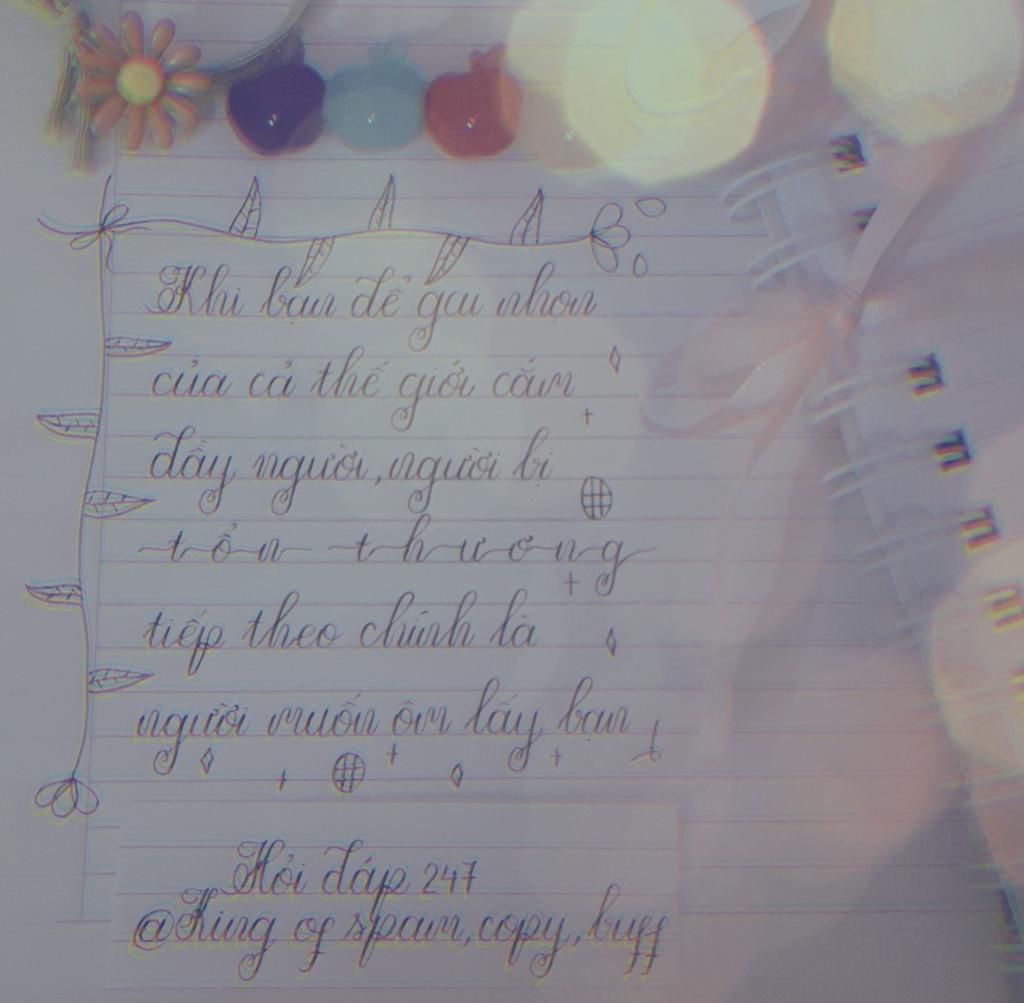 Khi bạn để gai nhọn
của cả thế giới cắm
đầy người, người bị
tổn thương
tiếp theo chính là
người muốn ôm lấy bạn
Hỏi đáp 247
@King of spam, copy, buff